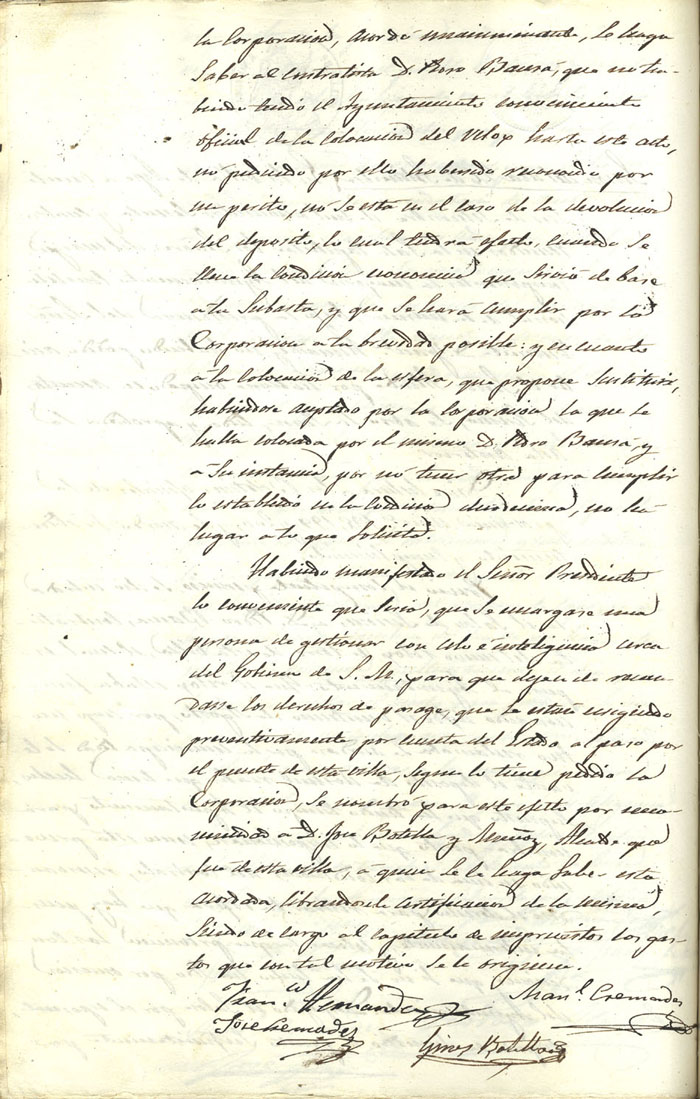 la Corporacion, acordó unanimemente, se haga
saber al contratista D. Pedro Bausá, que no ha-
biendo tenido el Ayuntamiento conocimiento
oficial de la colocacion del relox hasta este acto,
no pudiendo por ello haber sido reconocido por
un perito, no se está en el caso de la devolucion
del deposito, lo cual tendrá efecto, cuando se
llene la condicion economica que sirvió de base
a la subasta, y que se hará cumplir por la
Corporacion a la brevedad posible: y en cuanto
a la colocacion de la esfera, que propone sustituir,
habiendose aceptado por la Corporacion la que se
halla colocada por el mismo D. Pedro Bausá, y
a su instancia, por no tener otra para cumplir
lo establecido en la condicion, no há
lugar a lo que solicita.
Habiendo manifestado el Señor Presidente
lo conveniente que seria, que se encargase una
persona de gestionar con celo é inteligencia cerca
del Gobierno de S. M., para que dejen de recau-
darse los derechos de pasage, que se están exigiendo
preventivamente por cuenta del Estado al paso por
el puente de esta villa, segun lo tiene pedido la
Corporacion, se nombró para este efecto por una-
nimidad a D. Jose Botella y Muñoz, Alcalde que
fué de esta villa, á quien se le haga saber este
acordado, librandosele certificacion de la misma,
siendo de cargo al capitulo de imprevistos los gas-
tos que con tal motivo se le originen.
Fran.co Hernandez Man.l Cremades
Jose Cremades Gines Botella